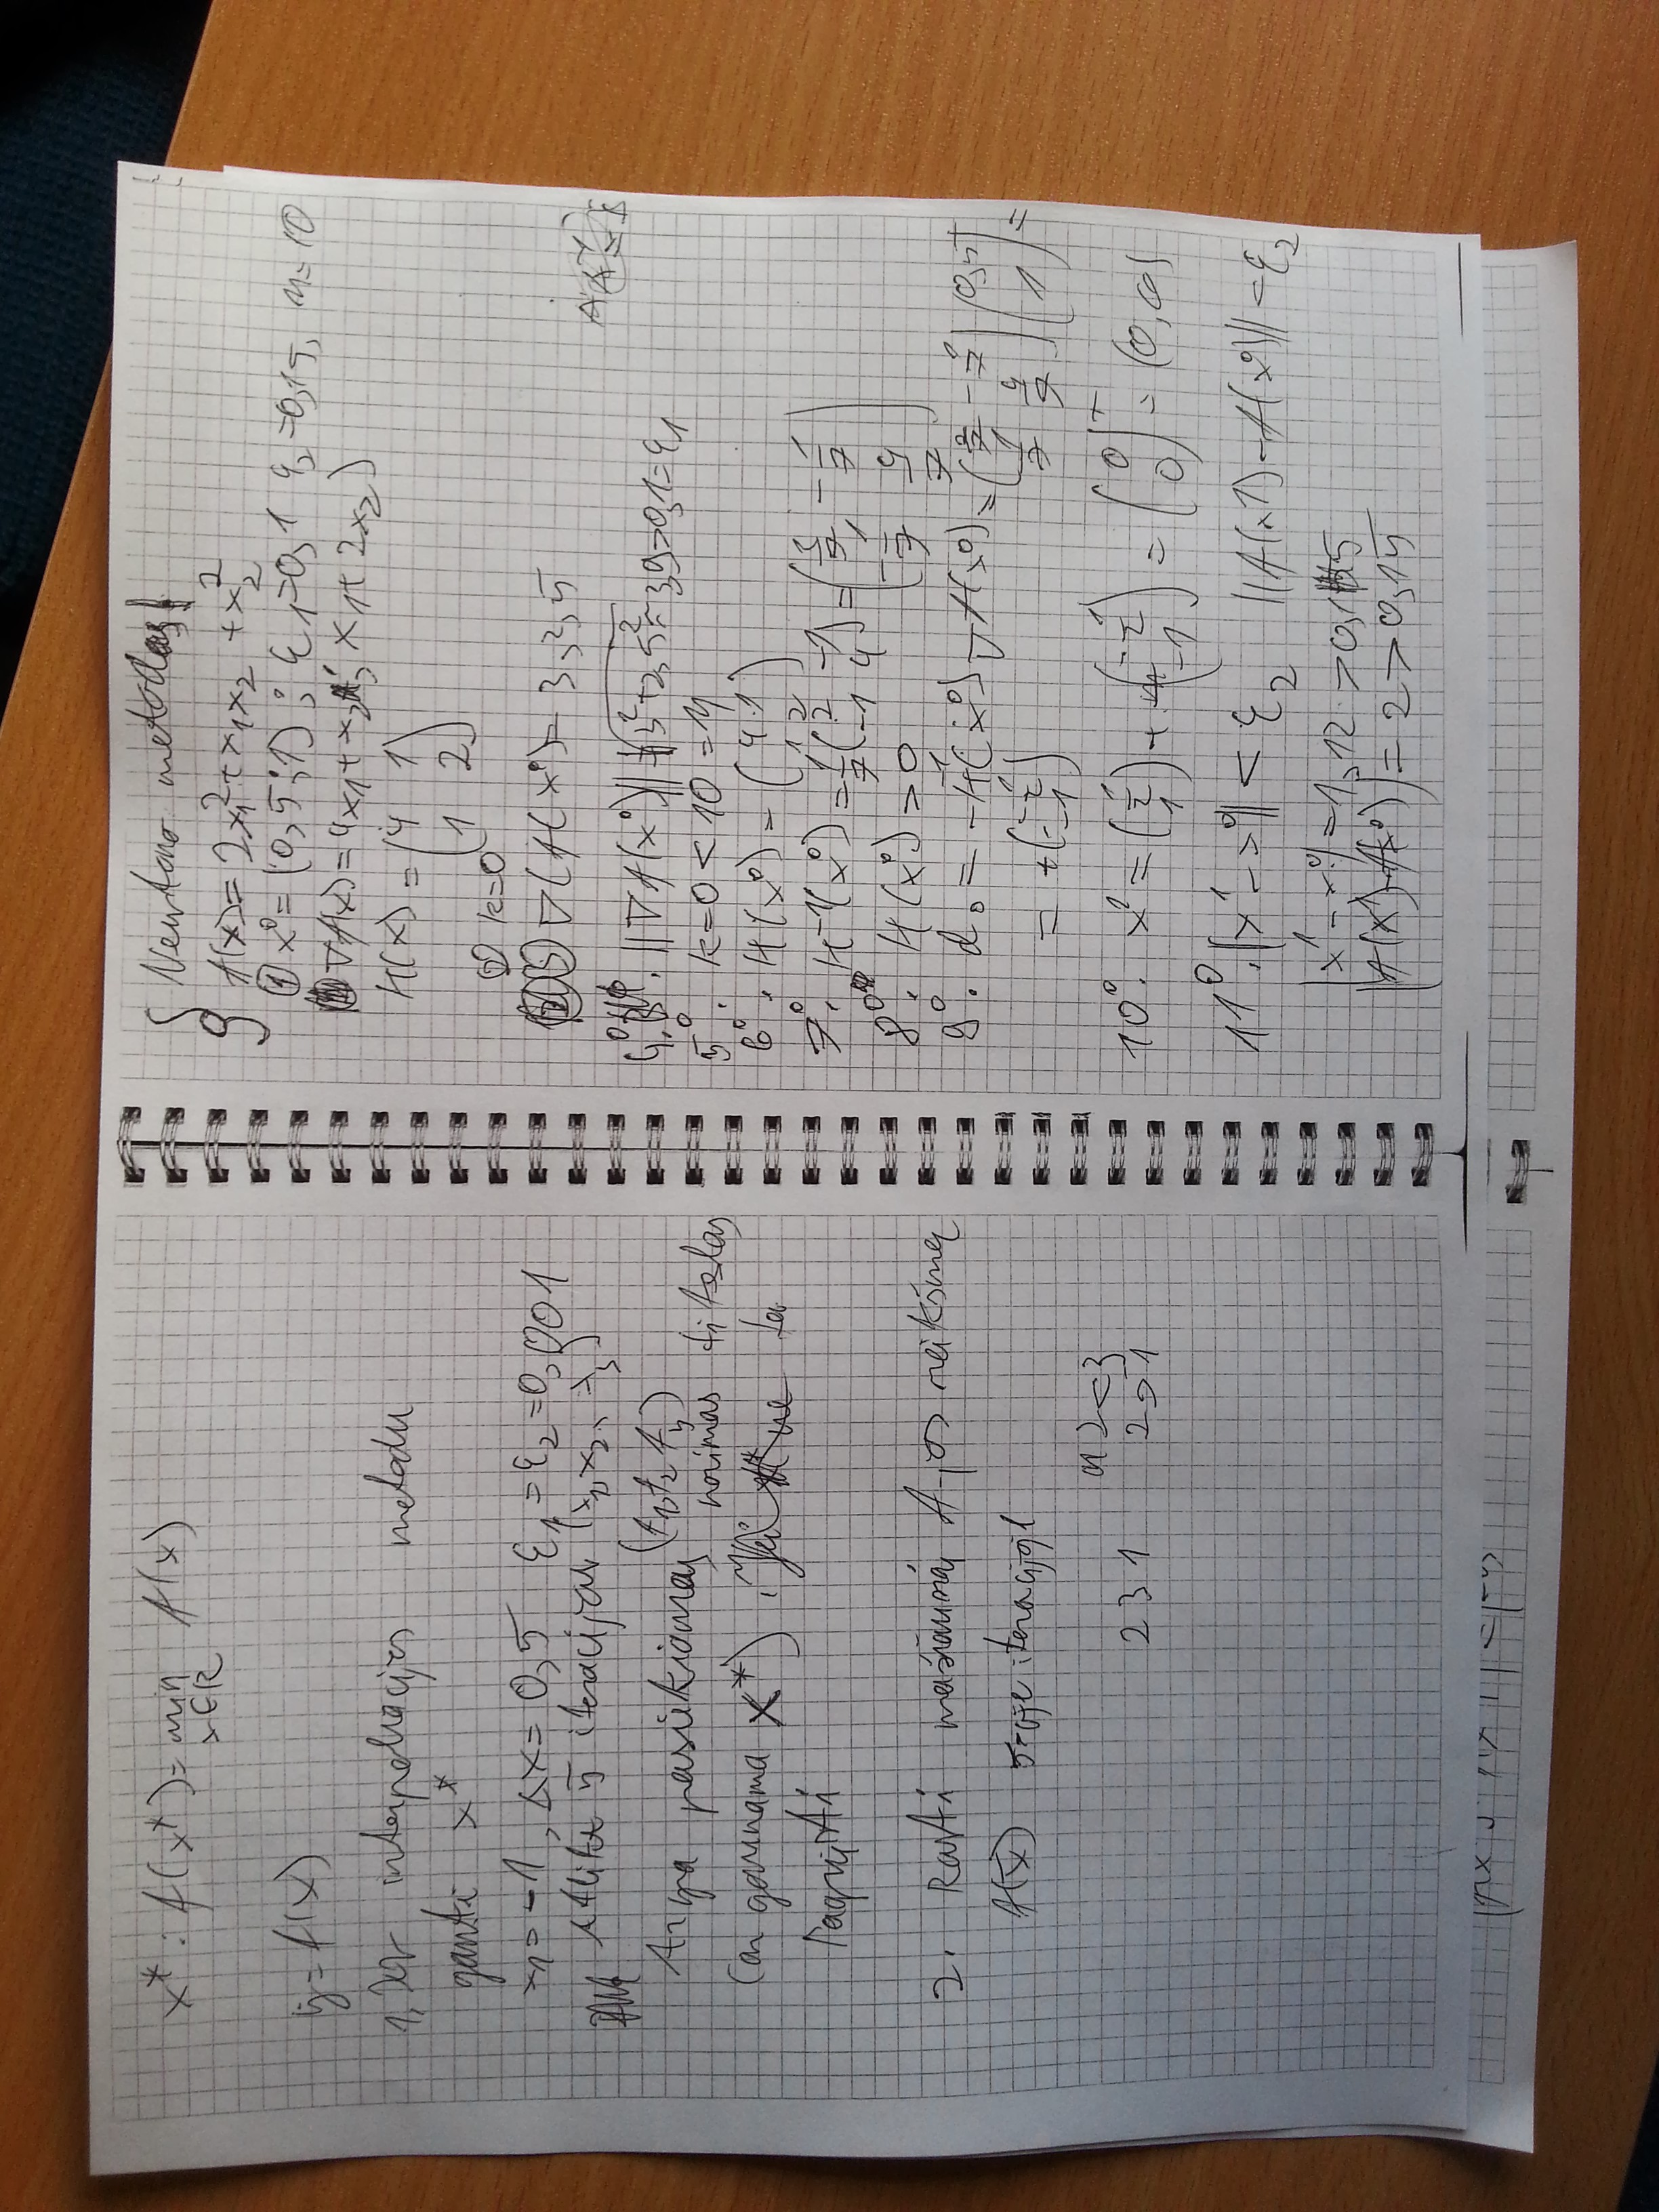 x* : f(x*) = min f(x)
x∈R
y = f(x)
1. interpoliacijos metodu
gauti x*
x₁ = -1, Δx = 0,5 ε₁ = ε₂ = 0,001
Atlikti 5 iteracijas (x₁, x₂, x₃)
(f₁, f₂, f₃)
Ar yra pasiekiamas norimas tikslas
(ar gaunama x*). Jei ne ta
2. Rasti mažiausią f-jos reikšmę
f(x̄) 5-oje iteracijoj
2 < 3
2 3 1 2 > 1
§ Newtono metodas
f(x) = 2x₁² + x₁x₂ + x₂²
① x⁰ = (0,5; 1); ε₁ = 0,1 ε₂ = 0,15, M = 10
∇f(x) = 4x₁ + x₂; x₁ + 2x₂)
H(x) = (4 1
1 2)
② k = 0
③ ∇(f(x⁰) = 3, 2,5
4⁰. ||∇f(x⁰)|| = √3² + 2,5² = 3,9 > 0,1 = ε₁
5⁰. k = 0 < 10 = M
6⁰. H(x⁰) = (4 1
1 2)
7⁰. H⁻¹(x⁰) = 1/7 (2 -1
-1 4) = (2/7 -1/7
-1/7 4/7)
8⁰. H(x⁰) > 0
9⁰. d₀ = -H⁻¹(x⁰) ∇f(x⁰) = (2/7 -1/7
1/7 4/7) (0,5
1) =
= +(-1/2
-1)
10⁰. x¹ = (1/2
1) + (-1/2
-1) = (0
0)ᵀ = (0, 0)
11⁰. ||x¹ - x⁰|| < ε₂ ||f(x¹) - f(x⁰)|| = ε₂
|x¹ - x⁰| = 1,12 > 0,15
|f(x¹) - f(x⁰)| = 2 > 0,15